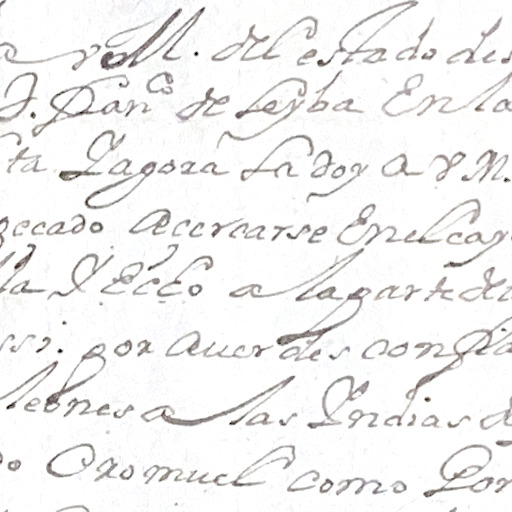 a v M. del estado des
D. Franco de Leyba En la
ta Yagora La doy A V M.
pecado Acercarse En el cay
lla Y Echo a la parte de
ssi. por Auer des confia
leones a las Yndias d
do Oromuel como Por